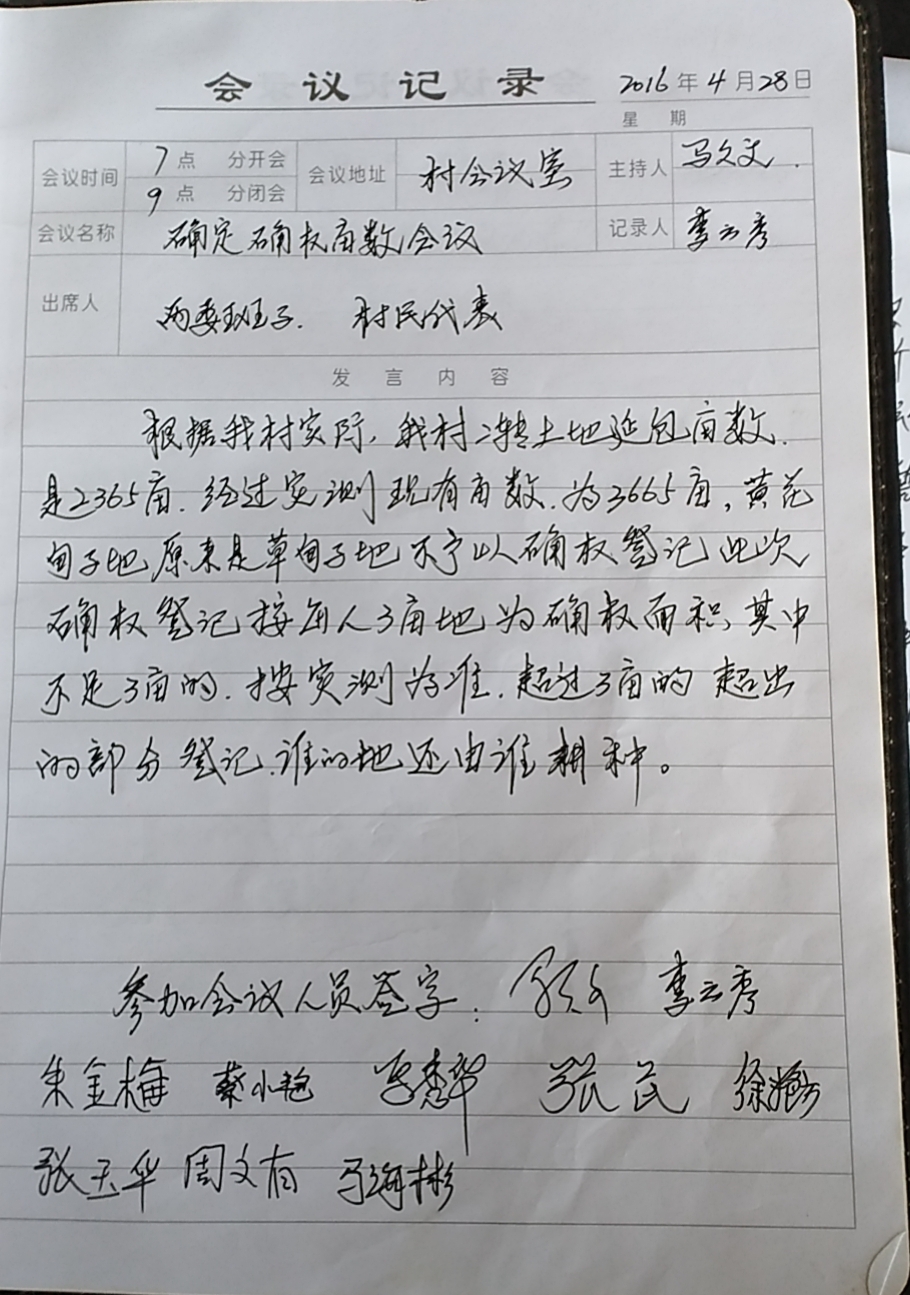 会议记录 2016年4月28日
星期
会议时间 7点 分开会 会议地址 村会议室 主持人 马文
9点 分闭会
会议名称 确定确权亩数会议 记录人 李云秀
出席人 两委班子. 村民代表
发言内容
根据我村实际,我村二轮土地延包亩数.
是2365亩.经过实测现有亩数.为3665亩,黄花
甸子地原来是草甸子地不予以确权登记此次
确权登记按每人3亩地为确权面积,其中
不足3亩的.按实测为准.超过3亩的 超出
的部分登记.谁的地还由谁耕种。
参加会议人员签字: 李云秀
朱金梅 蔡小艳 秀华 张民 徐
张玉华 周文有 马海彬